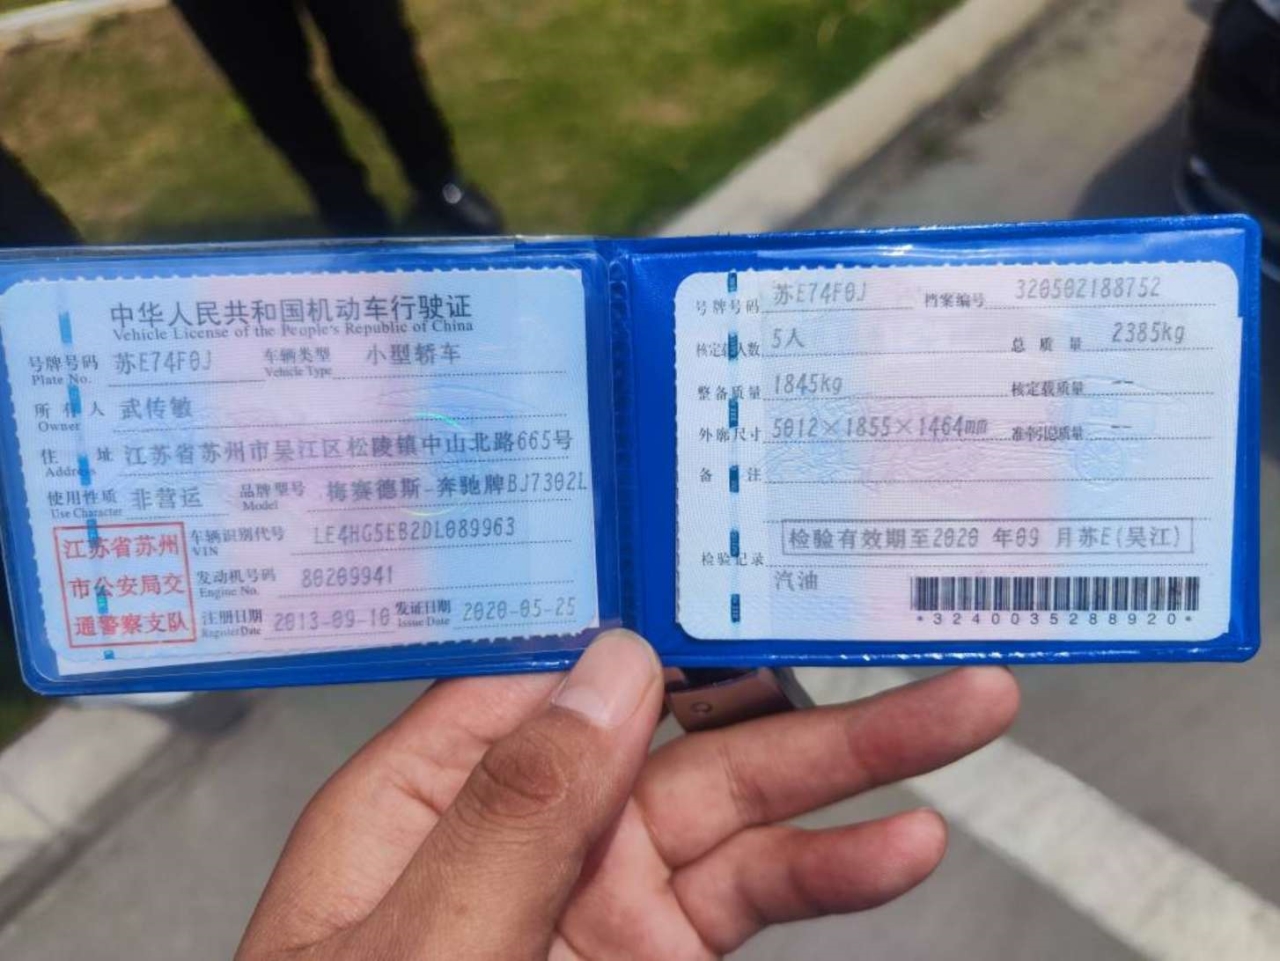 中华人民共和国机动车行驶证
Vehicle License of the People's Republic of China
号牌号码 苏E74F0J 车辆类型 小型轿车
Plate No. Vehicle Type
所有人 武传敏
Owner
住址 江苏省苏州市吴江区松陵镇中山北路665号
Address
使用性质 非营运 品牌型号 梅赛德斯-奔驰牌BJ7302L
Use Character Model
江苏省苏州
市公安局交
通警察支队
车辆识别代号 LE4HG5EB2DL089963
VIN
发动机号码 80209941
Engine No.
注册日期 2013-09-10 发证日期 2020-05-25
Register Date Issue Date
号牌号码 苏E74F0J 档案编号 320502188752
核定载人数 5人 总质量 2385kg
整备质量 1845kg 核定载质量 --
外廓尺寸 5012×1855×1464mm 准牵引总质量 --
备注
检验有效期至2020年09月苏E(吴江)
检验记录
汽油
*3240035288920*